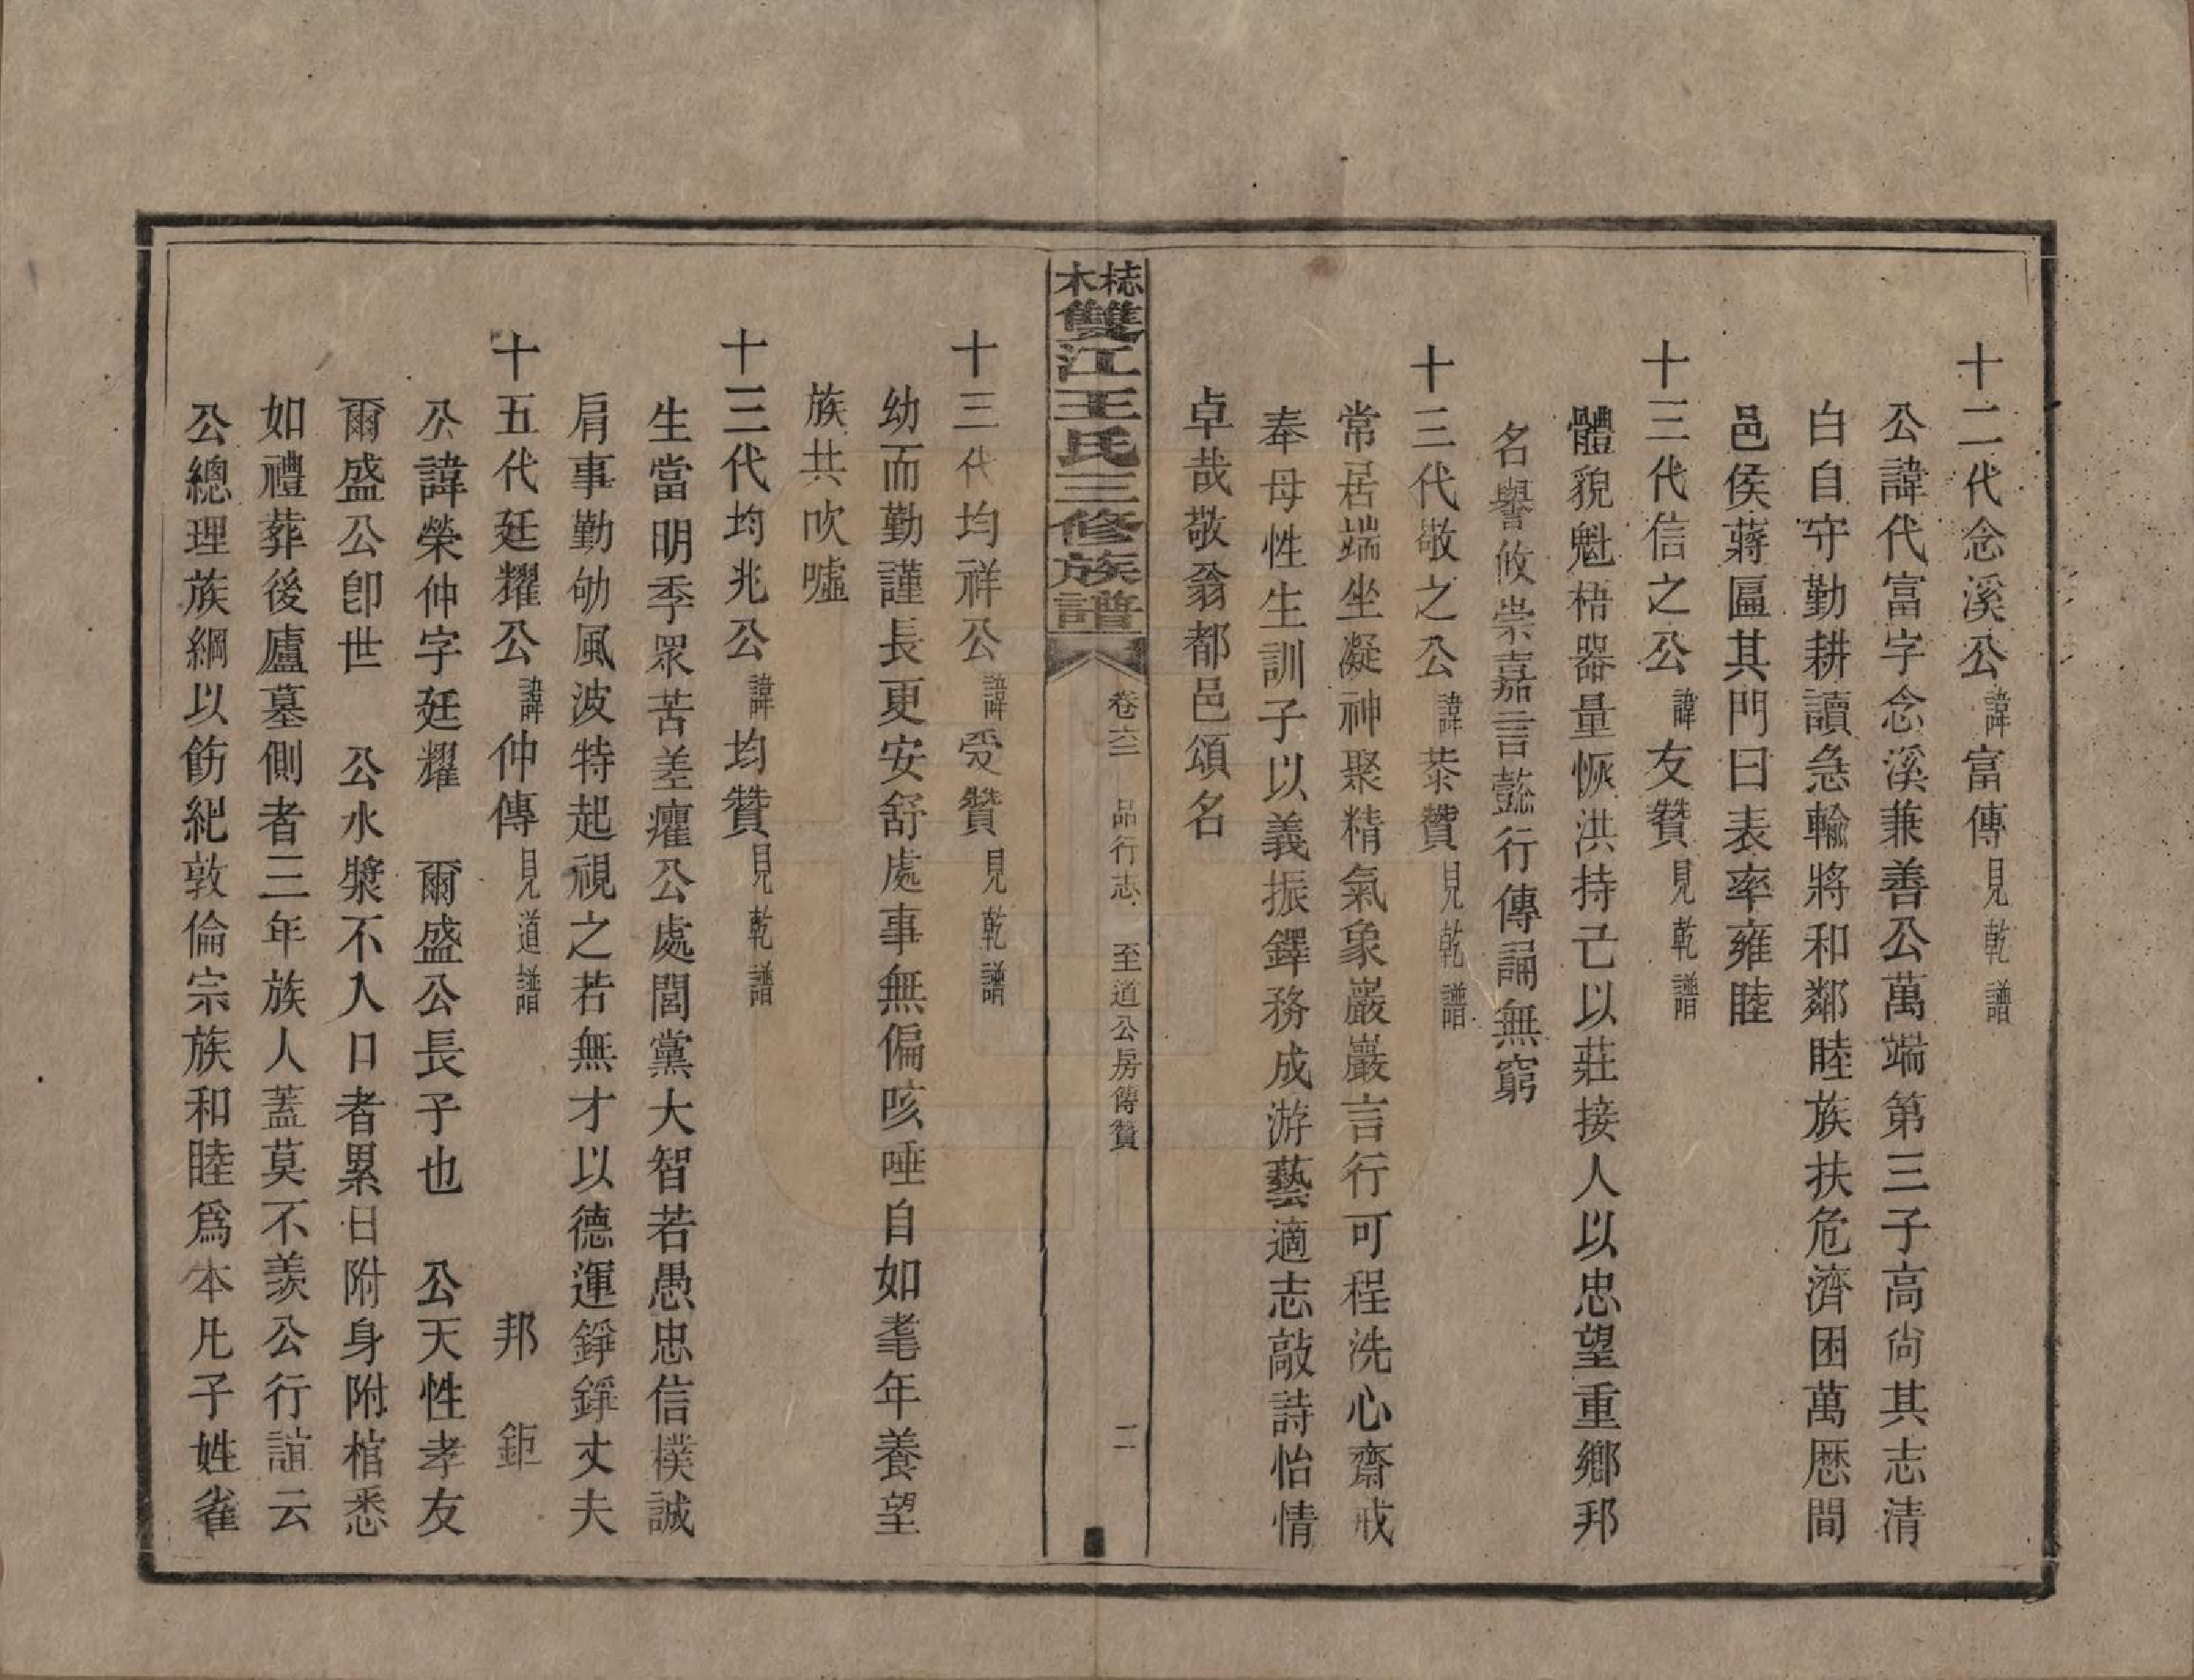 十二代念溪公諱富傳見乾譜
公諱代富字念溪兼善公萬端第三子高尙其志清
白自守勤耕讀急輸將和鄰睦族扶危濟困萬厯間
邑侯蔣匾其門曰表率雍睦
十三代信之公諱友贊見乾譜
體貌魁梧器量恢洪持己以莊接人以忠望重鄉邦
名譽攸崇嘉言懿行傳誦無窮
十三代敬之公諱恭贊見乾譜
常居端坐凝神聚精氣象巖巖言行可程洗心齋戒
奉母性生訓子以義振鐸務成游藝適志敲詩怡情
卓哉敬翁都邑頌名
梽木雙江王氏三修族譜 卷六二 品行志 至道公房傳贊 二
十三代均祥公諱受贊見乾譜
幼而勤謹長更安舒處事無偏咳唾自如耄年養望
族共吹噓
十三代均兆公諱均贊見乾譜
生當明季眾苦差癯公處閭黨大智若愚忠信樸誠
肩事勤劬風波特起視之若無才以德運錚錚丈夫
十五代廷耀公諱仲傳見道譜 邦鉅
公諱榮仲字廷耀 爾盛公長子也 公天性孝友
爾盛公卽世 公水漿不入口者累日附身附棺悉
如禮葬後廬墓側者三年族人蓋莫不羨公行誼云
公總理族綱以飭紀敦倫宗族和睦爲本凡子姓雀